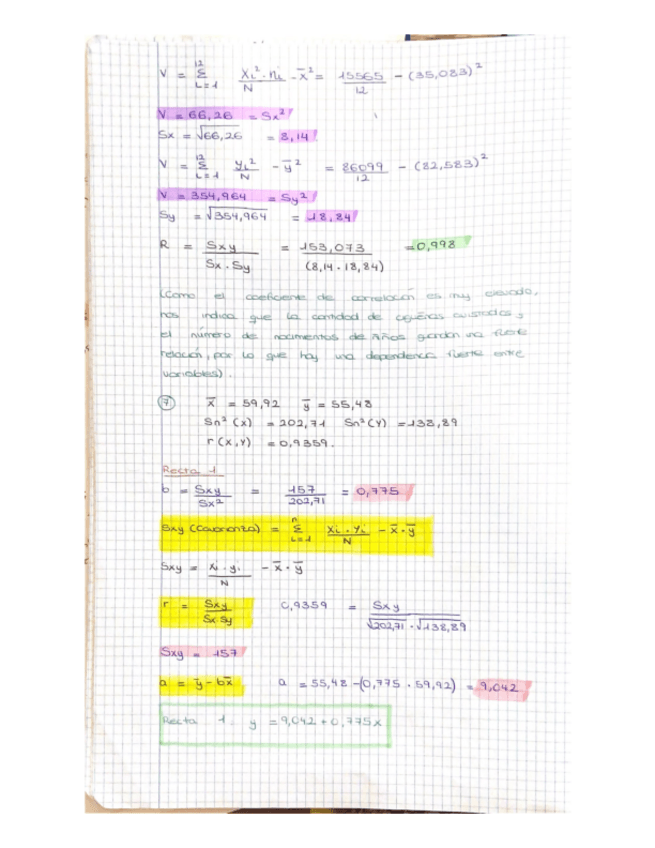 V = 12 Σ i=1 Xi²·ni / N - x̄² = 15565 / 12 - (35,083)²
V = 66,26 = Sx²
Sx = √66,26 = 8,14
V = 12 Σ i=1 yi² / N - ȳ² = 86099 / 12 - (82,583)²
V = 354,964 = Sy²
Sy = √354,964 = 18,84
R = Sxy / Sx·Sy = 153,073 / (8,14 · 18,84) = 0,998
(Como el coeficiente de correlación es muy elevado,
nos indica que la cantidad de cigüeñas avistadas y
el número de nacimientos de niños guardan una fuerte
relación, por lo que hay una dependencia fuerte entre
variables).
7 x̄ = 59,92 ȳ = 55,48
Sn²(x) = 202,71 Sn²(Y) = 138,89
r(x,y) = 0,9359.
Recta 1
b = Sxy / Sx² = 157 / 202,71 = 0,775
Sxy (Covarianza) = n Σ i=1 Xi · Yi / N - x̄·ȳ
Sxy = xi · yi / N - x̄ · ȳ
r = Sxy / Sx·Sy 0,9359 = Sxy / √202,71 · √138,89
Sxy = 157
a = ȳ - bx̄ a = 55,48 - (0,775 · 59,92) = 9,042
Recta 1. y = 9,042 + 0,775x